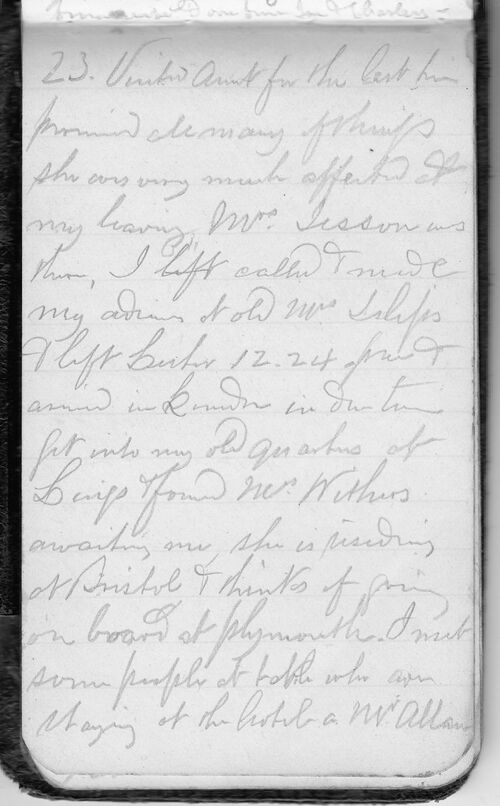 23. Visited Aunt for the last time
promised me many of things
she was very much affected at
my leaving, Mrs. Sisson was
there, I left called & made
my adieus at old Mrs Islips
& left 12.24 &
arrived in London in due time
got into my old quarters at
& found Mrs. Withers
awaiting me, she is residing
at Bristol & thinks of going
on board at Plymouth. I met
some people at table who are
staying at the hotel a Mr Allan